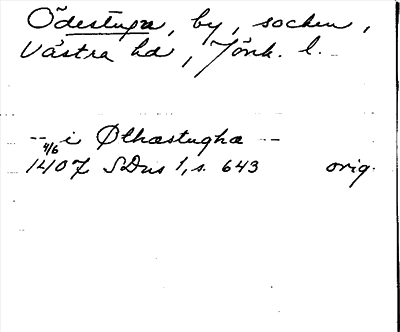 Ödestuga, by, socken,
Västra hd, Jönk. l.
-- i Øthæstugha --
4/6
1407 SDns 1, s. 643 orig.